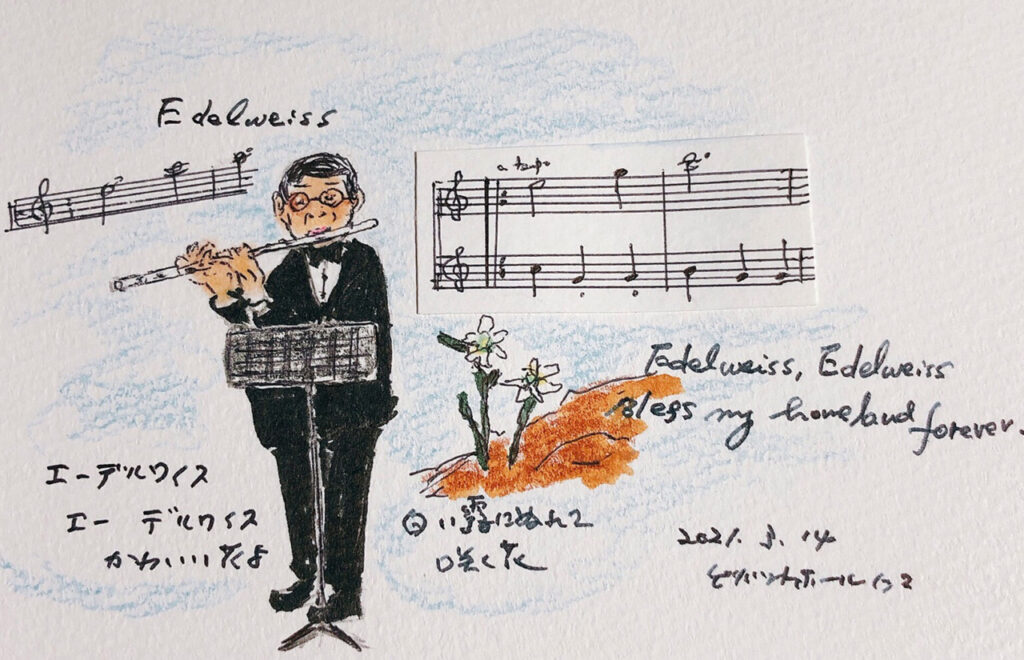 Edelweiss
a tempo
Edelweiss, Edelweiss
Bless my homeland
forever.
エーデルワイス
エーデルワイス
かわいい花よ
白い露にぬれて
咲く花
2021. 3. 14
ホールにて